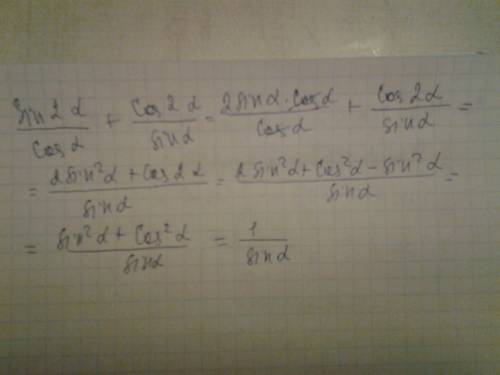 sin 2α/cos α + cos 2α/sin α = 2 sin α · cos α/cos α + cos 2α/sin α =
= 2 sin²α + cos 2α/sin α = 2 sin²α + cos²α − sin²α/sin α =
= sin²α + cos²α/sin α = 1/sin α